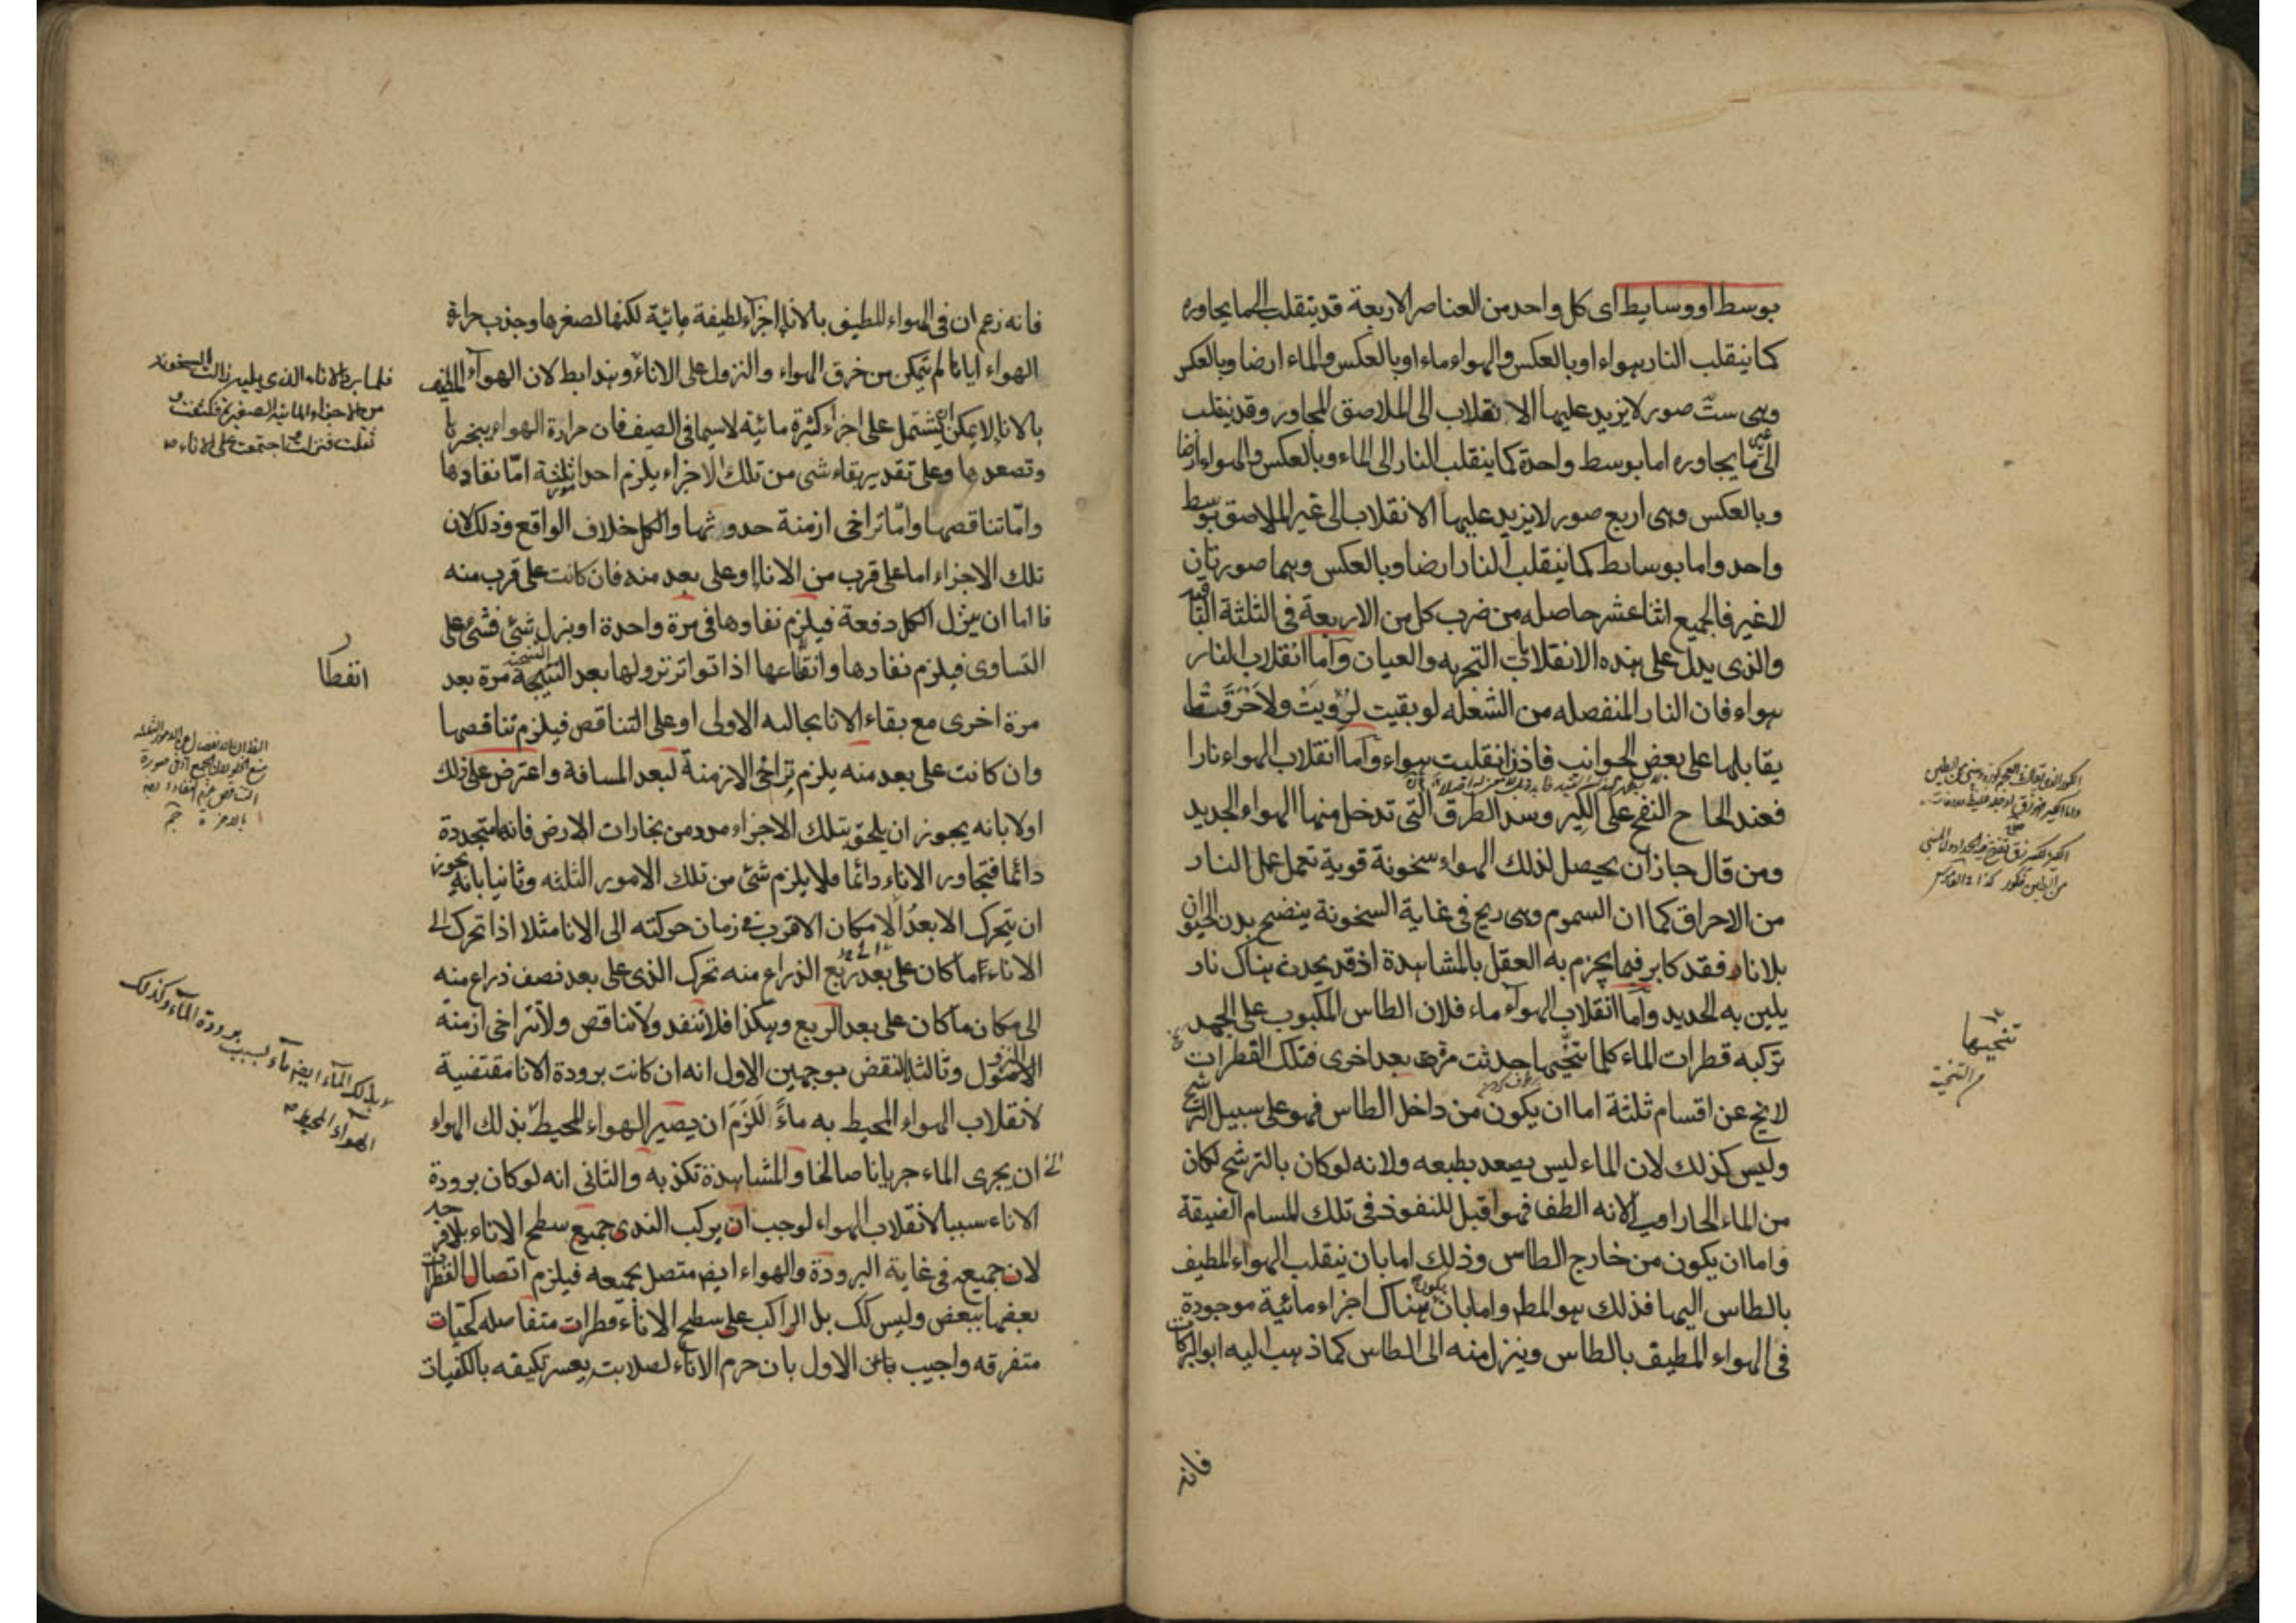 بوسط او وسايط اى كل واحد من العناصر الاربعة قد ينقلب الى ما يجاوره
كما ينقلب النار هواء او بالعكس والهواء ماء او بالعكس والماء ارضا وبالعكس
وهى ستّ صور لا يزيد عليها الانقلاب الى الملاصق المجاور وقد ينقلب
الى غير ما يجاوره اما بوسط واحدة كما ينقلب النار الى الماء وبالعكس والهواء ارضا
وبالعكس وهى اربع صور لا يزيد عليها الانقلاب الى غير الملاصق بوسط
واحد واما بوسايط كما ينقلب النار ارضا وبالعكس وهما صورتان
لا غير فالجميع اثنا عشر حاصله من ضرب كل من الاربعة فى الثلثة الباقية
والذى يدل على هذه الانقلابات التجربه والعيان واما انقلاب النار
هواء فان النار المنفصله من الشعله لو بقيت لرُؤيتْ ولاَحْرَقَتْ ما
يقابلها على بعض الجوانب فاذن انقلبت هواء واما انقلاب الهواء نارا
فعند الحاح النفخ على الكير وسد الطرق التى تدخل منها الهواء الجديد
ومن قال جاز ان يحصل لذلك الهواء سخونة قوية تعمل عمل النار
من الاحراق كما ان السموم وهى ريح فى غاية السخونة ينضج بدن الحيوان
بلا نار فقد كابر فيما يجزم به العقل بالمشاهدة اذ قد يحدث هناك نار
يلين به الحديد واما انقلاب الهواء ماء فلان الطاس المكبوب على الجمد
تركبه قطرات الماء كلما نحّيها حدثت مرة بعد اخرى فتلك القطرات
لا يخ عن اقسام ثلثة اما ان يكون من داخل الطاس فهو على سبيل الترشح
وليس كذلك لان الماء ليس يصعد بطبعه ولانه لو كان بالترشح لكان
من الماء الحار اولى لانه الطف فهو اقبل للنفوذ فى تلك المسام الضيقة
واما ان يكون من خارج الطاس وذلك اما بان ينقلب الهواء المطيف
بالطاس اليها فذلك هو المط واما بان يكون هناك اجزاء مائية موجودة
فى الهواء المطيف بالطاس وينزل منه الى الطاس كما ذهب اليه ابو البركات
تنحيها
م التنحية
فانه
فانه زعم ان فى الهواء المطيف بالاناء اجزاء لطيفة مائية لكنها لصغرها وجذب حرارة
الهواء اياها لم تتمكن من خرق الهواء والنزول على الاناء وهذا بط لان الهواء المطيف
بالاناء لا يمكن ان يشتمل على اجزاء كثيرة مائية لاسيما فى الصيف فان حرارة الهواء يبخرها
وتصعدها وعلى تقدير بقاء شى من تلك الاجزاء يلزم احد امور ثلثة امّا نفادها
وامّا تناقصها وامّا تراخى ازمنة حدوثها والكل خلاف الواقع وذلك لان
تلك الاجزاء اما على قرب من الاناء او على بعد منه فان كانت على قرب منه
فاما ان ينزل الكل دفعة فيلزم نفادها فى مرة واحدة او ينزل شئ فشئ على
التساوى فيلزم نفادها وانقطاعها اذا تواتر نزولها بعد التنحية مرة بعد
مرة اخرى مع بقاء الانا بحاله الاولى او على التناقص فيلزم تناقصها
وان كانت على بعد منه يلزم تراخى الازمنة لبعد المسافة واعترض على ذلك
اولا بانه يجوز ان يلحق بتلك الاجزاء مدد من بخارات الارض فانها متجددة
دائما فتجاور الاناء دائما فلا يلزم شئ من تلك الامور الثلثه وثانيا بانه يجوز
ان يتحرك الابعدُ الى مكان الاقرب فى زمان حركته الى الانا مثلا اذا تحرك الى
الاناء ما كان على بعد ربع الذراع منه تحرك الذى على بعد نصف ذراع منه
الى مكان ما كان على بعد الربع وهكذا فلا تنفد ولا تناقص ولا تتراخى ازمنة
النزول وثالثا بالنقض بوجهين الاول انه ان كانت برودة الانا مقتضية
لانقلاب الهواء المحيط به ماءً لَلَزِمَ ان يصير الهواء المحيط بذلك الهواء
الى ان يجرى الماء جريانا صالحا والمشاهدة تكذبه والثانى انه لو كان برودة
الاناء سببا لانقلاب الهواء لوجب ان يركب الندى جميع سطح الاناء بلا فرجه
لان جميعه فى غاية البرودة والهواء ايض متصل بجميعه فيلزم اتصال القطرات
بعضها ببعض وليس كك بل الراكب على سطح الاناء قطرات متفاصله كحبّات
متفرقه واجيب عن الاول بان جرم الاناء لصلابته يعسر تكيفه بالكيفيات
فلما برد الاناء الذى يليه زالت السخونة
من الاجزاء المائية الصغيرة فكثفت و
ثقلت فنزلت واجتمعت على الاناء صح
بذلك الماء ايض ماء بسبب برودة الماء وكذلك
الهواء المحيط صح